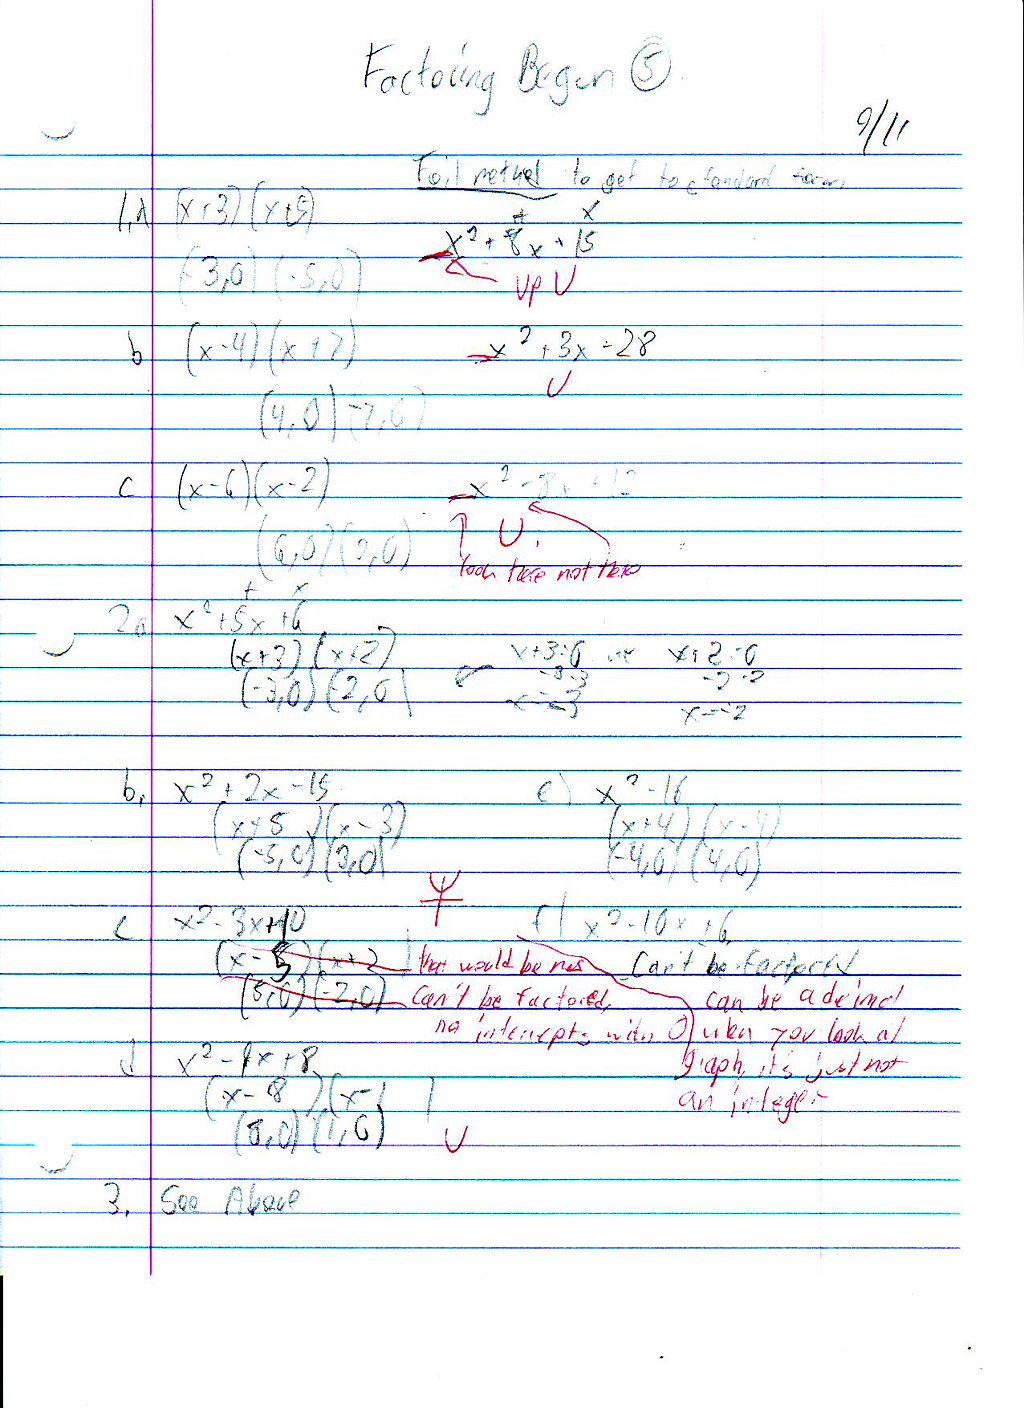 Factoring Begun 5
9/11
Foil method to get to standard form
1,a (x+3)(x+5)
+ x
x² + 8x + 15
(-3,0) (-5,0)
up U
b (x-4)(x+7) x² + 3x - 28
U
(4,0)(-7,0)
c (x-6)(x-2) x² - 8x + 12
U
(6,0)(2,0)
look here not here
+ x
2a x² + 5x + 6
(x+3)(x+2) x+3=0 x+2=0
(-3,0)(-2,0) -3 -3 -2 -2
x=-3 x=-2
b, x² + 2x - 15 e) x² - 16
(x+5)(x-3) (x+4)(x-4)
(-5,0)(3,0) (-4,0)(4,0)
c x² - 3x + 10 f) x² - 10x + 6
(x-5)(x+2) that would be Can't be Factored
(5,0)(-2,0) Can't be factored, can be a decimal
no intercepts with 0 when you look at
graph, it's just not
an integer
d x² - 9x + 8
(x-8)(x-1)
(8,0)(1,0) U
3. See Above